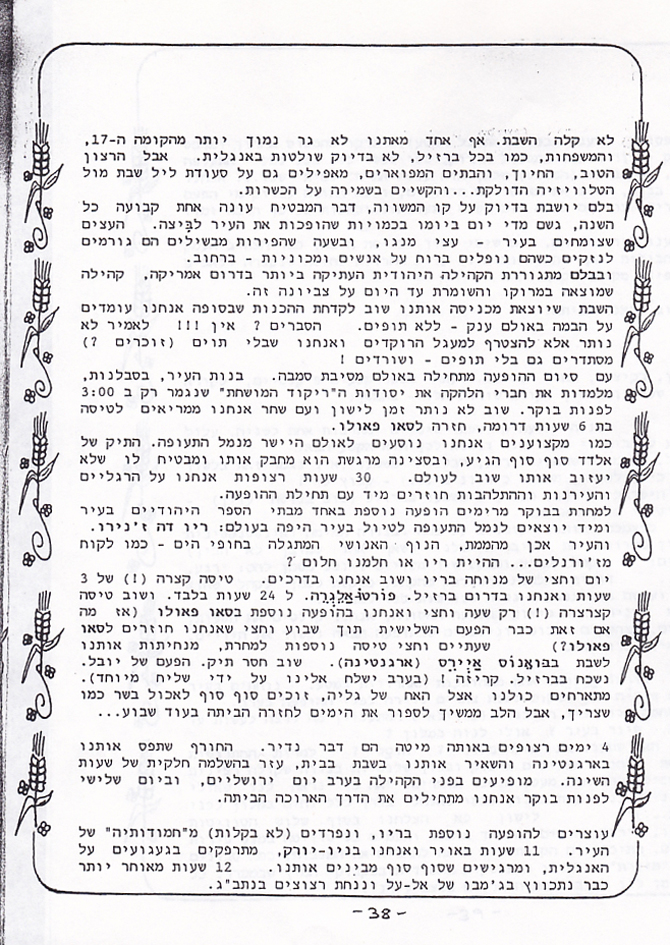 לא קלה השבת. אף אחד מאתנו לא גר נמוך יותר מהקומה ה-17,
והמשפחות, כמו בכל ברזיל, לא בדיוק שולטות באנגלית. אבל הרצון
הטוב, החיוך, והבתים המפוארים, מאפילים גם על סעודת ליל שבת מול
הטלוויזיה הדולקת...והקשיים בשמירה על הכשרות.
בלם יושבת בדיוק על קו המשווה, דבר המבטיח עונה אחת קבועה כל
השנה, גשם מדי יום ביומו בכמויות שהופכות את העיר לביצה. העצים
שצומחים בעיר - עצי מנגו, ובשעה שהפירות מבשילים הם גורמים
לנזקים כשהם נופלים ברוח על אנשים ומכוניות - ברחוב.
ובבלם מתגוררת הקהילה היהודית העתיקה ביותר בדרום אמריקה, קהילה
שמוצאה במרוקו והשומרת עד היום על צביונה זה.
השבת שיוצאת מכניסה אותנו שוב לקדחת ההכנות שבסופה אנחנו עומדים
על הבמה באולם ענק - ללא תופים. הסברים ? אין !!! לאמיר לא
נותר אלא להצטרף למעגל הרוקדים ואנחנו שבלי תוים (זוכרים ?)
מסתדרים גם בלי תופים - ושורדים !
עם סיום ההופעה מתחילה באולם מסיבת סמבה. בנות העיר, בסבלנות,
מלמדות את חברי הלהקה את יסודות ה"ריקוד המושחת" שנגמר רק ב 3:00
לפנות בוקר. שוב לא נותר זמן לישון ועם שחר אנחנו ממריאים לטיסה
בת 6 שעות דרומה, חזרה לסאו פאולו.
כמו מקצוענים אנחנו נוסעים לאולם היישר מנמל התעופה. התיק של
אלדד סוף סוף הגיע, ובסצינה מרגשת הוא מחבק אותו ומבטיח לו שלא
יעזוב אותו שוב לעולם. 30 שעות רצופות אנחנו על הרגליים
והעירנות וההתלהבות חוזרים מיד עם תחילת ההופעה.
למחרת בבוקר מרימים הופעה נוספת באחד מבתי הספר היהודיים בעיר
ומיד יוצאים לנמל התעופה לטיול בעיר היפה בעולם: ריו דה ז'נירו.
והעיר אכן מהממת, הנוף האנושי המתגלה בחופי הים - כמו לקוח
מז'ורנלים... ההיית ריו או חלמנו חלום ?
יום וחצי של מנוחה בריו ושוב אנחנו בדרכים. טיסה קצרה (!) של 3
שעות ואנחנו בדרום ברזיל. פורטו-אלגרה. ל 24 שעות בלבד. ושוב טיסה
קצרצרה (!) רק שעה וחצי ואנחנו בהופעה נוספת בסאו פאולו (אז מה
אם זאת כבר הפעם השלישית תוך שבוע וחצי שאנחנו חוזרים לסאו
פאולו?) שעתיים וחצי טיסה נוספות למחרת, מנחיתות אותנו
לשבת בבואנוס איירס (ארגנטינה). שוב חסר תיק. הפעם של יובל.
נשכח בברזיל. קריזה ! (בערב ישלח אלינו על ידי שליח מיוחד).
מתארחים כולנו אצל האח של גליה, זוכים סוף סוף לאכול בשר כמו
שצריך, אבל הלב ממשיך לספור את הימים לחזרה הביתה בעוד שבוע...
4 ימים רצופים באותה מיטה הם דבר נדיר. החורף שתפס אותנו
בארגנטינה והשאיר אותנו בשבת בבית, עזר בהשלמה חלקית של שעות
השינה. מופיעים בפני הקהילה בערב יום ירושליים, וביום שלישי
לפנות בוקר אנחנו מתחילים את הדרך הארוכה הביתה.
עוצרים להופעה נוספת בריו, ונפרדים (לא בקלות) מ"חמודותיה" של
העיר. 11 שעות באויר ואנחנו בניו-יורק, מתרפקים בגעגועים על
האנגלית, ומרגישים שסוף סוף מבינים אותנו. 12 שעות מאוחר יותר
כבר נתכווץ בג'מבו של אל-על וננחת רצוצים בנתב"ג.
- 38 -